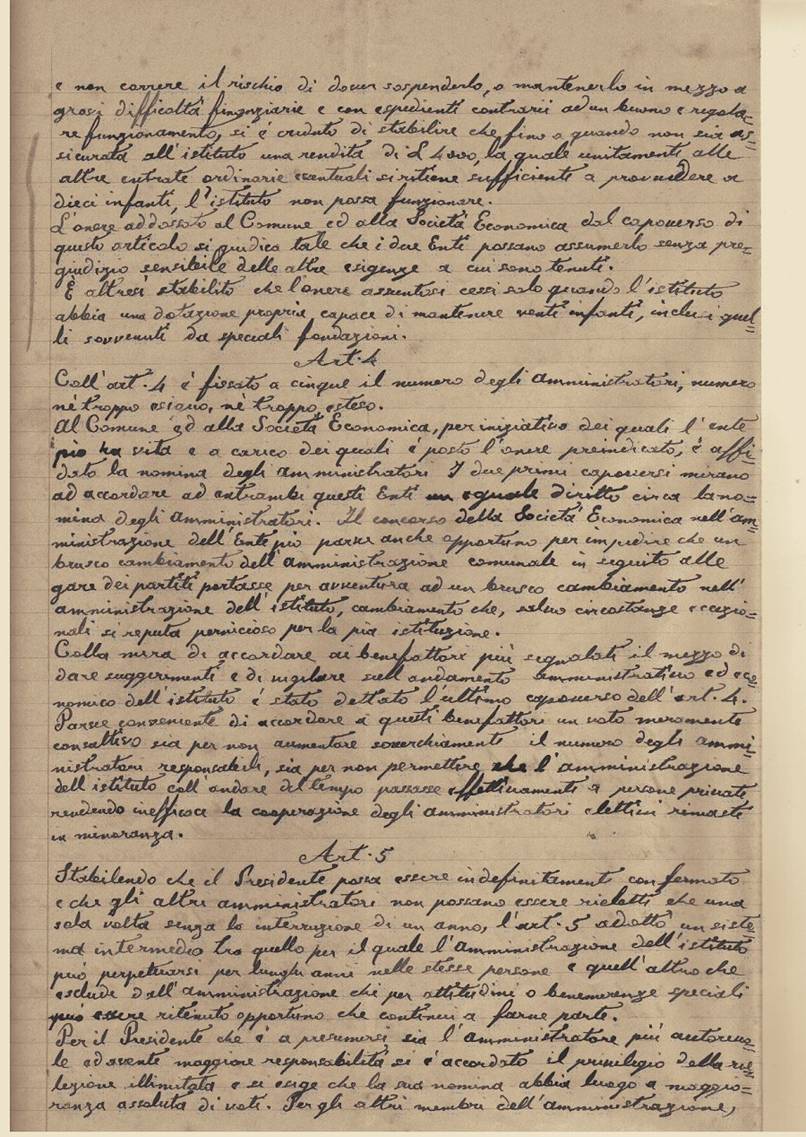 e non correre il rischio di dover sospenderlo, o mantenerlo in mezzo a
gravi difficoltà finanziarie e con espedienti contrarii ad un buono e regola=
re funzionamento, si è creduto di stabilire che fino a quando non sia as=
sicurata all'istituto una rendita di £ 4000, la quale unitamente alle
altre entrate ordinarie eventuali si ritiene sufficiente a provvedere a
dieci infanti, l'istituto non possa funzionare.
L'onere addossato al Comune ed alla Società Economica dal capoverso di
questo articolo si giudica tale che i due Enti possano assumerlo senza pre=
giudizio sensibile delle altre esigenze a cui sono tenuti.
È altresì stabilito che l'onere assuntosi cessi solo quando l'istituto
abbia una dotazione propria, capace di mantenere venti infanti, inclusi quel=
li sovvenuti da speciali fondazioni.
Art. 4
Coll'art. 4 è fissato a cinque il numero degli amministratori, numero
nè troppo esiguo, nè troppo esteso.
Al Comune ed alla Società Economica, per iniziativa dei quali l'ente
pio ha vita e a carico dei quali è posto l'onere preindicato, è affi=
dato la nomina degli amministratori I due primi capoversi mirano
ad accordare ad entrambi questi Enti un eguale diritto circa la no=
mina degli amministratori. Il concorso della Società Economica nell'am=
ministrazione dell'Ente pio parve anche opportuno per impedire che un
brusco cambiamento dell'amministrazione comunale in seguito alle
gare dei partiti portasse per avventura ad un brusco cambiamento nell'
amministrazione dell'istituto, cambiamento che, salvo circostanze eccezio=
nali si reputa pernicioso per la pia istituzione.
Colla mira di accordare ai benefattori più segnalati il mezzo di
dare suggerimenti e di vigilare sull'andamento amministrativo ed eco=
nomico dell'istituto è stato dettato l'ultimo capoverso dell'art. 4.
Parve conveniente di accordare a questi benefattori un voto meramente
consultivo sia per non aumentare soverchiamente il numero degli ammi=
nistratori responsabili, sia per non permettere che l'amministrazione
dell'istituto coll'andare del tempo passasse effettivamente a persone private
rendendo inefficace la cooperazione degli amministratori elettivi rimasti
in minoranza.
Art. 5
Stabilendo che il Presidente possa essere indefinitamente confermato
e che gli altri amministratori non possano essere rieletti che una
sola volta senza la interruzione di un anno, l'art. 5 adottò un siste=
ma intermedio tra quello per il quale l'amministrazione dell'istituto
può perpetuarsi per lunghi anni nelle stesse persone e quell'altro che
esclude dall'amministrazione chi per attitudini o benemerenze speciali
può essere ritenuto opportuno che continui a farne parte.
Per il Presidente che è a presumersi sia l'amministratore più autorevo=
le ed avente maggiore responsabilità si è accordato il privilegio della rie=
lezione illimitata e si esige che la sua nomina abbia luogo a maggio=
ranza assoluta di voti. Per gli altri membri dell'amministrazione,